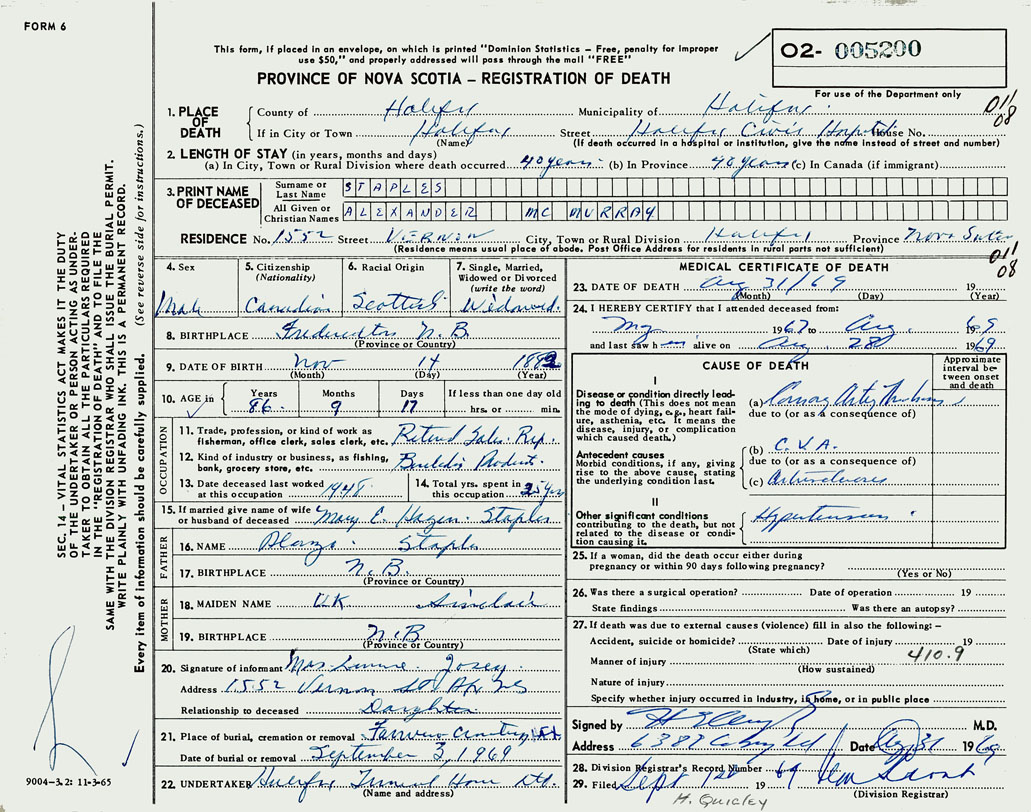 FORM 6
This form, if placed in an envelope, on which is printed "Dominion Statistics – Free, penalty for improper
use $50," and properly addressed will pass through the mail "FREE"
PROVINCE OF NOVA SCOTIA – REGISTRATION OF DEATH
02- 005200
For use of the Department only
011
08
1. PLACE OF DEATH
County of Halifax Municipality of Halifax
If in City or Town Halifax Street Halifax Civic Hospital House No.
(Name) (If death occurred in a hospital or institution, give the name instead of street and number)
2. LENGTH OF STAY (in years, months and days)
(a) In City, Town or Rural Division where death occurred 40 years (b) In Province 40 years (c) In Canada (if immigrant)
3. PRINT NAME OF DECEASED
Surname or Last Name STAPLES
All Given or Christian Names ALEXANDER MC MURRAY
RESIDENCE No. 1552 Street VERNON City, Town or Rural Division Halifax Province Nova Scotia
(Residence means usual place of abode. Post Office Address for residents in rural parts not sufficient)
011
08
4. Sex Male
5. Citizenship (Nationality) Canadian
6. Racial Origin Scottish
7. Single, Married, Widowed or Divorced (write the word) Widowed
8. BIRTHPLACE Fredericton N.B.
(Province or Country)
9. DATE OF BIRTH Nov 14 1882
(Month) (Day) (Year)
10. AGE in Years 86 Months 9 Days 17 If less than one day old hrs. or min.
OCCUPATION
11. Trade, profession, or kind of work as fisherman, office clerk, sales clerk, etc. Retired Sales Rep.
12. Kind of industry or business, as fishing, bank, grocery store, etc. Builders Products
13. Date deceased last worked at this occupation 1948
14. Total yrs. spent in this occupation 25 yrs
15. If married give name of wife or husband of deceased Mary E. Hagen Staples
FATHER
16. NAME Alonzo Staples
17. BIRTHPLACE N.B.
(Province or Country)
MOTHER
18. MAIDEN NAME UK Sinclair
19. BIRTHPLACE N.B
(Province or Country)
20. Signature of informant Mrs Josey
Address 1552 Vernon St
Relationship to deceased Daughter
21. Place of burial, cremation or removal Fairview
Date of burial or removal September 3, 1969
22. UNDERTAKER Halifax Funeral Home Ltd.
(Name and address)
MEDICAL CERTIFICATE OF DEATH
23. DATE OF DEATH Aug 31/69 19
(Month) (Day) (Year)
24. I HEREBY CERTIFY that I attended deceased from:
My 1967 to Aug. 1969
and last saw h im alive on Aug. 28 1969
CAUSE OF DEATH
Approximate interval between onset and death
I
Disease or condition directly leading to death (This does not mean the mode of dying, e.g., heart failure, asthenia, etc. It means the disease, injury, or complication which caused death.)
(a) Coronary Artery Thrombosis
due to (or as a consequence of)
Antecedent causes
Morbid conditions, if any, giving rise to the above cause, stating the underlying condition last.
(b) C.V.A.
due to (or as a consequence of)
(c) Arteriosclerosis
II
Other significant conditions contributing to the death, but not related to the disease or condition causing it. Hypertension
25. If a woman, did the death occur either during
pregnancy or within 90 days following pregnancy?
(Yes or No)
26. Was there a surgical operation? Date of operation 19
State findings Was there an autopsy?
27. If death was due to external causes (violence) fill in also the following:–
Accident, suicide or homicide? Date of injury 19
(State which)
410.9
Manner of injury
(How sustained)
Nature of injury
Specify whether injury occurred in Industry, in home, or in public place
Signed by M.D.
Address 6389 Date Aug 31 1969
28. Division Registrar's Record Number
29. Filed Sept 1st 19 69
(Division Registrar)
H. Quigley
SEC. 14 – VITAL STATISTICS ACT MAKES IT THE DUTY
OF THE UNDERTAKER OR PERSON ACTING AS UNDER-
TAKER TO OBTAIN ALL THE PARTICULARS REQUIRED
IN THE "REGISTRATION OF DEATH" AND TO FILE THE
SAME WITH THE DIVISION REGISTRAR WHO SHALL ISSUE THE BURIAL PERMIT.
WRITE PLAINLY WITH UNFADING INK. THIS IS A PERMANENT RECORD.
Every item of information should be carefully supplied. (See reverse side for instructions.)
9004-3.2: 11-3-65